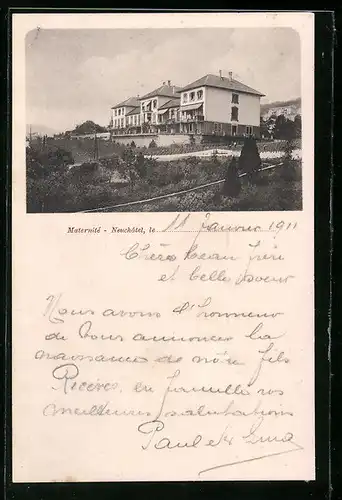 Maternité - Neuchâtel, le 11 Janvier 1911
Chers beau frère
et belle soeur
Nous avons l'honneur
de vous annoncer la
naissance de notre fils
en famille nos
meilleures salutations
Paul et Emma